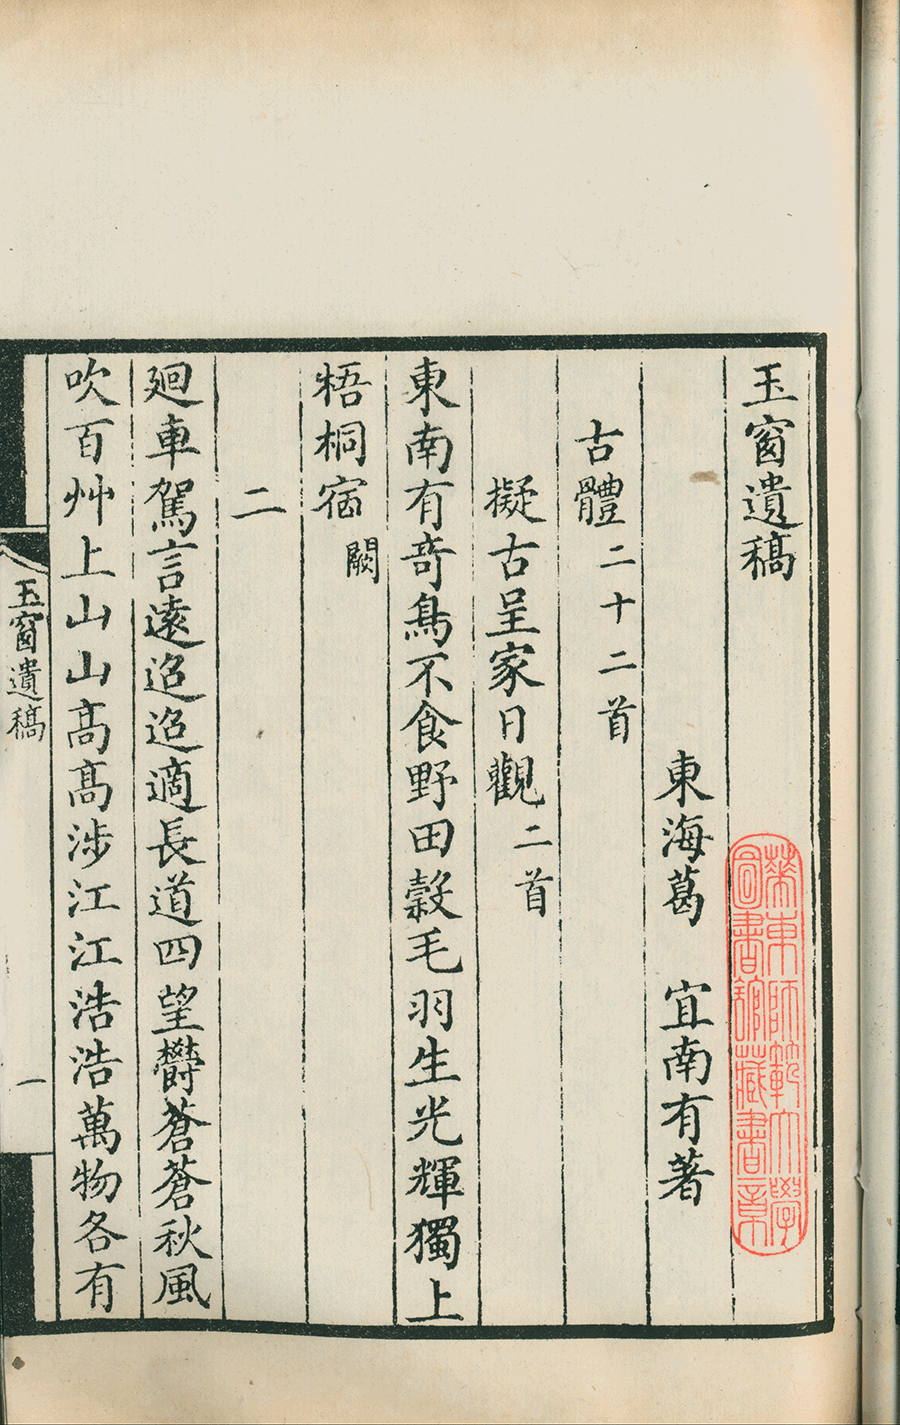 玉窗遺稿
東海葛　宜南有著
古體二十二首
擬古呈家日觀二首
東南有竒鳥不食野田穀毛羽生光輝獨上
梧桐宿闕
二
廻車駕言遠迢迢適長道四望欝蒼蒼秋風
吹百艸上山山高高涉江江浩浩萬物各有
玉窗遺稿
一
華東師範大學
圖書館藏書章